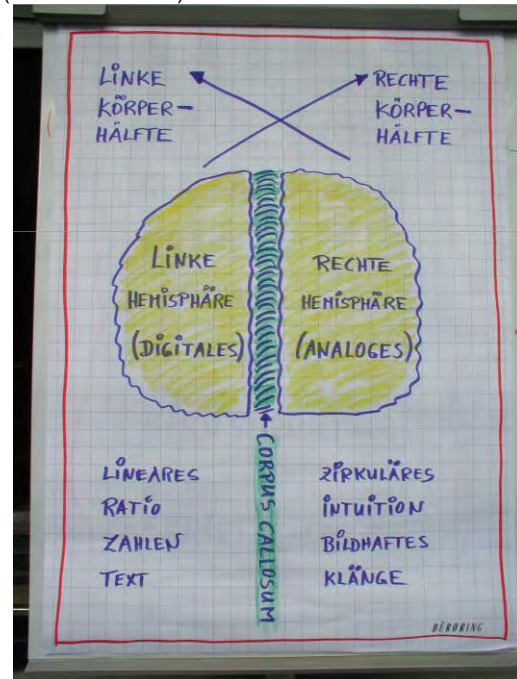 LINKE
KÖRPER-
HÄLFTE
RECHTE
KÖRPER-
HÄLFTE
LINKE
HEMISPHÄRE
(DIGITALES)
RECHTE
HEMISPHÄRE
(ANALOGES)
CORPUS CALLOSUM
LINEARES
RATIO
ZAHLEN
TEXT
ZIRKULÄRES
INTUITION
BILDHAFTES
KLÄNGE